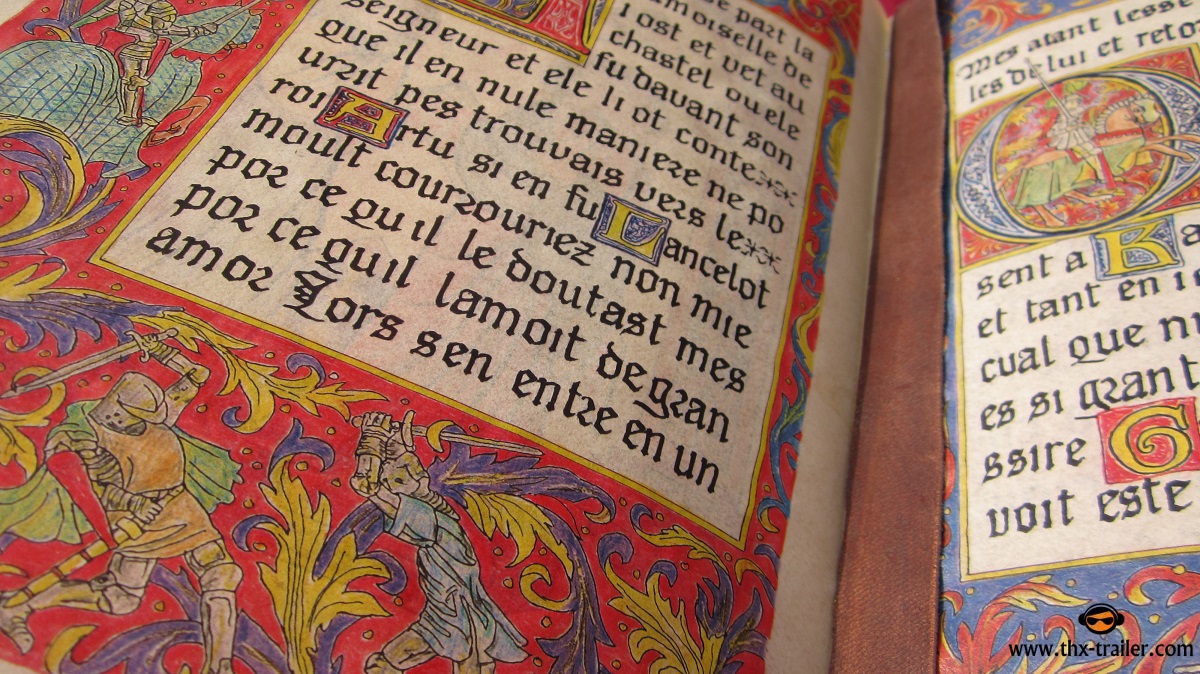 se part la
amoiselle de
lost et vet au
chastel ou ele
fu davant son
seigneur et ele li ot conte
que il en nule maniere ne po
urrit pes trouvais vers le
roi Artu si en fu Lancelot
moult courrouriez non mie
por ce quil le doutast mes
por ce quil lamoit de gran
amor Lors sen entre en un
Mes atant lesse
les de lui et reto
sent a Ba
et tant en
cual que
es si grant
ssire G
voit este
www.thx-trailer.com